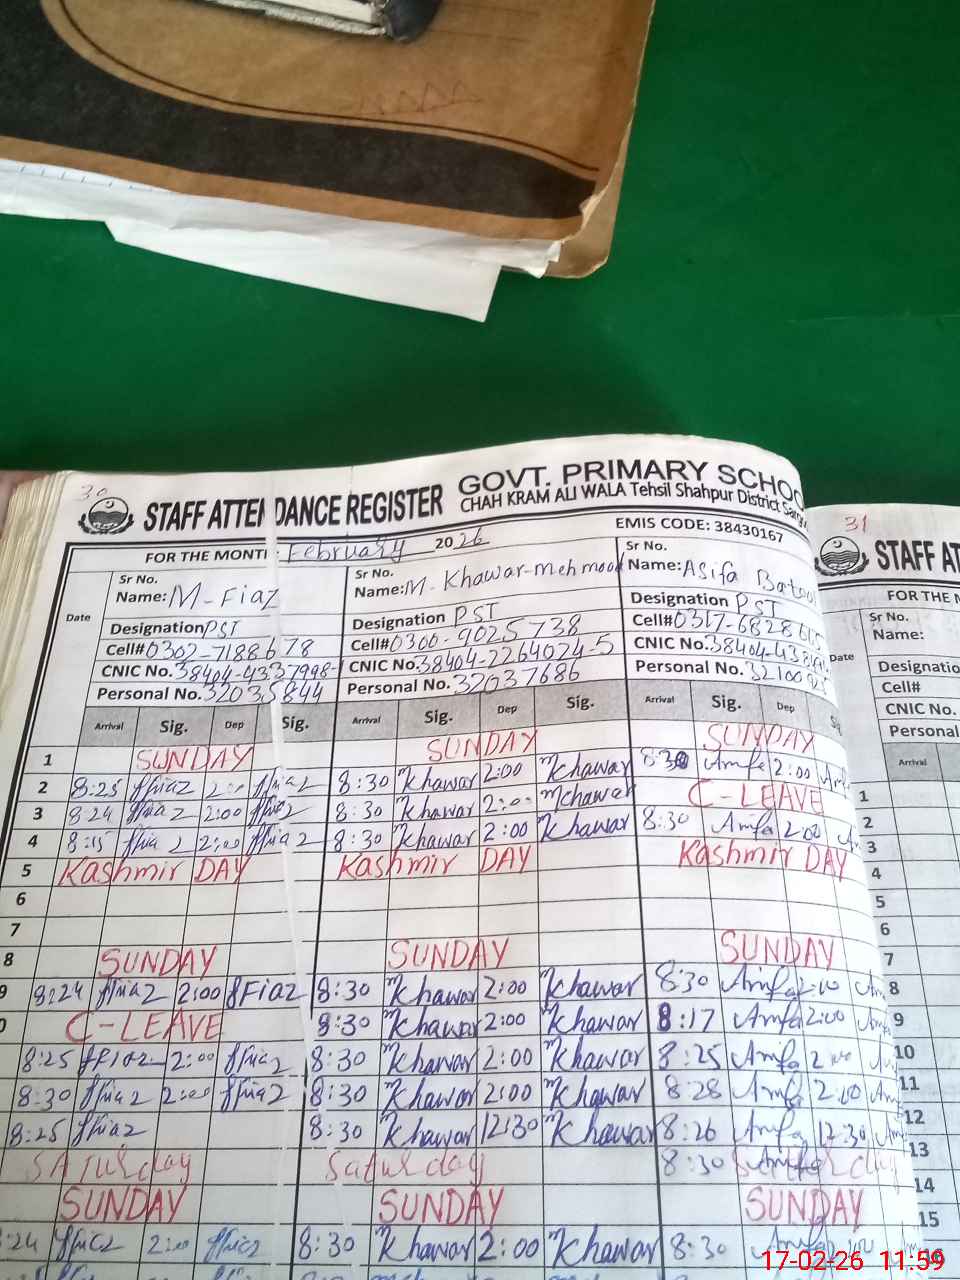 30
STAFF ATTENDANCE REGISTER GOVT. PRIMARY SCHOO
CHAH KRAM ALI WALA Tehsil Shahpur District Sarg
EMIS CODE: 38430167
FOR THE MONTH: February 2026
Date
Sr No. Sr No. Sr No.
Name: M-Fiaz Name: M. Khawar-mehmood Name: Asifa Batool
Designation PST Designation PST Designation PST
Cell# 0302-7188678 Cell# 0300-9025738 Cell# 0317-6828
CNIC No. 38404-4337998- CNIC No. 38404-2264024-5 CNIC No. 38404-438
Personal No. 32035844 Personal No. 32037686 Personal No. 32100
Arrival Sig. Dep Sig. Arrival Sig. Dep Sig. Arrival Sig. Dep
1 SUNDAY SUNDAY SUNDAY
2 8:25 ffiaz 2:00 ffiaz 8:30 mkhawar 2:00 mkhawar 8:30 2:00
3 8:24 ffiaz 2:00 ffiaz 8:30 mkhawar 2:00 mchawar C-LEAVE
4 8:15 ffiaz 2:00 ffiaz 8:30 mkhawar 2:00 mkhawar 8:30 2:00
5 Kashmir DAY Kashmir DAY Kashmir DAY
6
7
8 SUNDAY SUNDAY SUNDAY
9 8:24 ffiaz 2:00 fFiaz 8:30 mkhawar 2:00 mkhawar 8:30 2:00
0 C-LEAVE 8:30 mkhawar 2:00 mkhawar 8:17 2:00
8:25 fFiaz 2:00 ffiaz 8:30 mkhawar 2:00 mkhawar 8:25 2:00
8:30 ffiaz 2:00 ffiaz 8:30 mkhawar 2:00 mkhawar 8:28 2:00
8:25 ffiaz 8:30 mkhawar 12:30 mkhawar 8:26 12:30
SATurday Saturday 8:30
SUNDAY SUNDAY SUNDAY
:24 ffiaz 2:00 ffiaz 8:30 mkhawar 2:00 mkhawar 8:30
31
STAFF AT
FOR THE M
Date
Sr No.
Name:
Designatio
Cell#
CNIC No.
Personal
Arrival
1
2
3
4
5
6
7
8
9
10
11
12
13
14
15
16
17-02-26 11:59